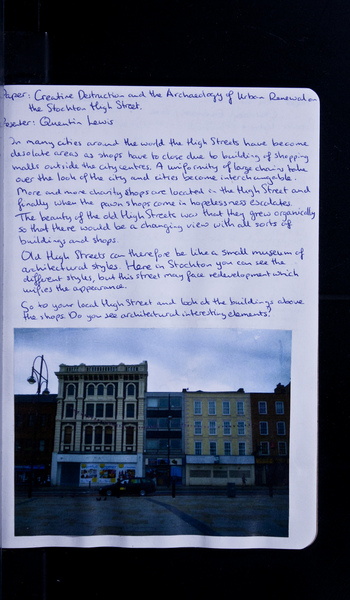 Paper: Creative Destruction and the Archaeology of Urban Renewal on
the Stockton High Street.
Presenter: Quentin Lewis
In many cities around the world the High Streets have become
desolate areas as shops have to close due to building of shopping
malls outside the city centres. A uniformity of large chains take
over the look of the city and cities become interchangable.
More and more charity shops are located in the High Street and
finally when the pawn shops come in hopelessness escalates.
The beauty of the old High Streets was that they grew organically
so that there would be a changing view with all sorts of
buildings and shops.
Old High Streets can therefore be like a small museum of
architectural styles. Here in Stockton you can see the
different styles, but this street may face redevelopment which
unifies the appearance.
Go to your local High Street and look at the buildings above
the shops. Do you see architectural interesting elements?